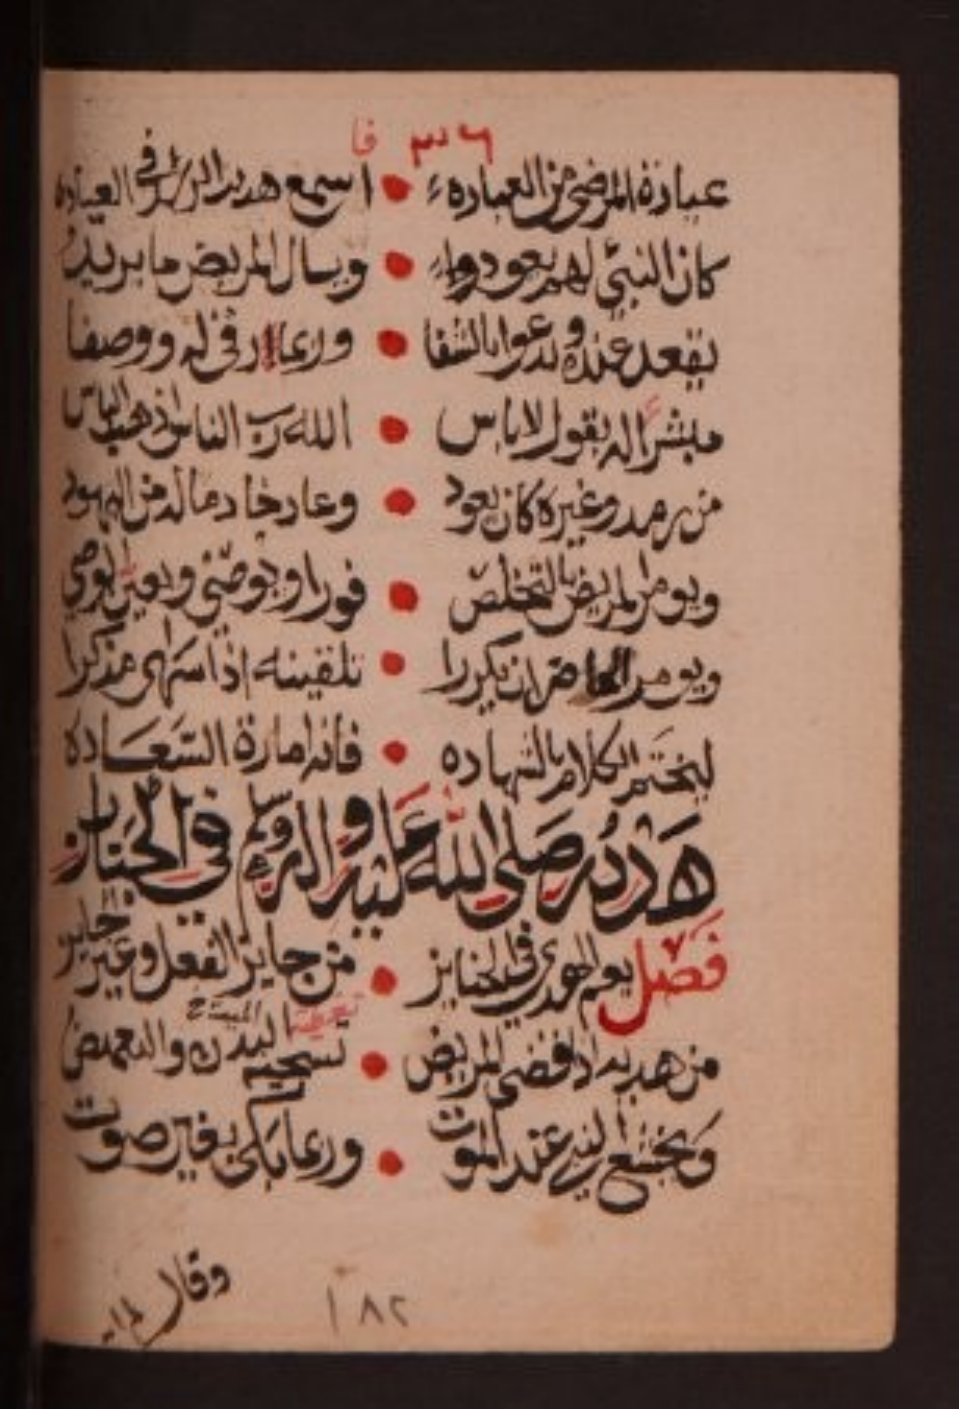 ٣٦ فا
عيادة المرضى من العباده اسمع هديه الزهر في العياده
كان النبي لهم يعود ويسال المريض ما يريد
يقعد عنده ويدعوا بالشفا وربما رقى له ووصفا
مبشرا له يقول لا باس الله رب الناس اذهب الباس
من رمد وغيره كان يعود وعاد خادما له من اليهود
ويومر المريض بالتخلص فورا ويوصي ويعين الوصي
ويومر الحاضر ان يكررا تلقينه اذا سهى مذكرا
ليختم الكلام بالشهاده فانه امارة السعاده
هديه صلى الله عليه واله وسلم في الجنايز
فصل يوم الهدي في الجنايز من جايز الفعل وغير الجايز
من هديه اذا قضى المريض تسجية البدن والتغميض
الميت
ويخشع النبي عند الموت وربما بكى بغير صوت
وقال
١٨٢